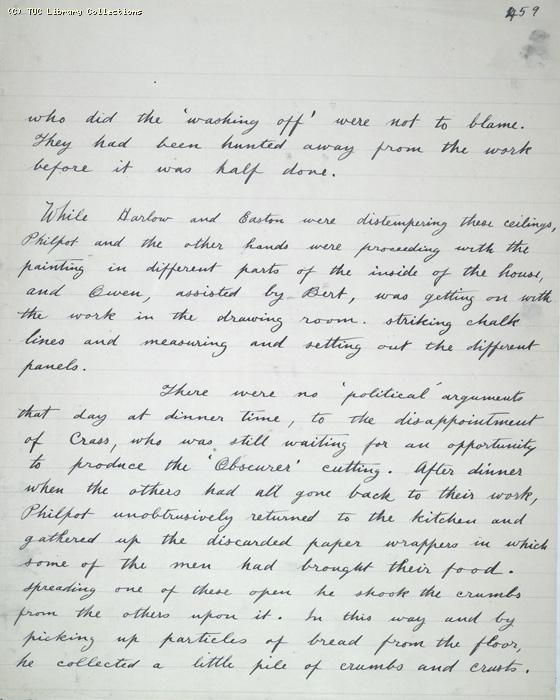 (C) TUC Library Collections
459
who did the 'washing off' were not to blame.
They had been hunted away from the work
before it was half done.
While Harlow and Easton were distempering these ceilings,
Philpot and the other hands were proceeding with the
painting in different parts of the inside of the house,
and Owen, assisted by Bert, was getting on with
the work in the drawing room. striking chalk
lines and measuring and setting out the different
panels.
There were no 'political' arguments
that day at dinner time, to the disappointment
of Crass, who was still waiting for an opportunity
to produce the 'Obscurer' cutting. After dinner
when the others had all gone back to their work,
Philpot unobtrusively returned to the kitchen and
gathered up the discarded paper wrappers in which
some of the men had brought their food.
spreading one of these open he shook the crumbs
from the others upon it. In this way and by
picking up particles of bread from the floor,
he collected a little pile of crumbs and crusts.